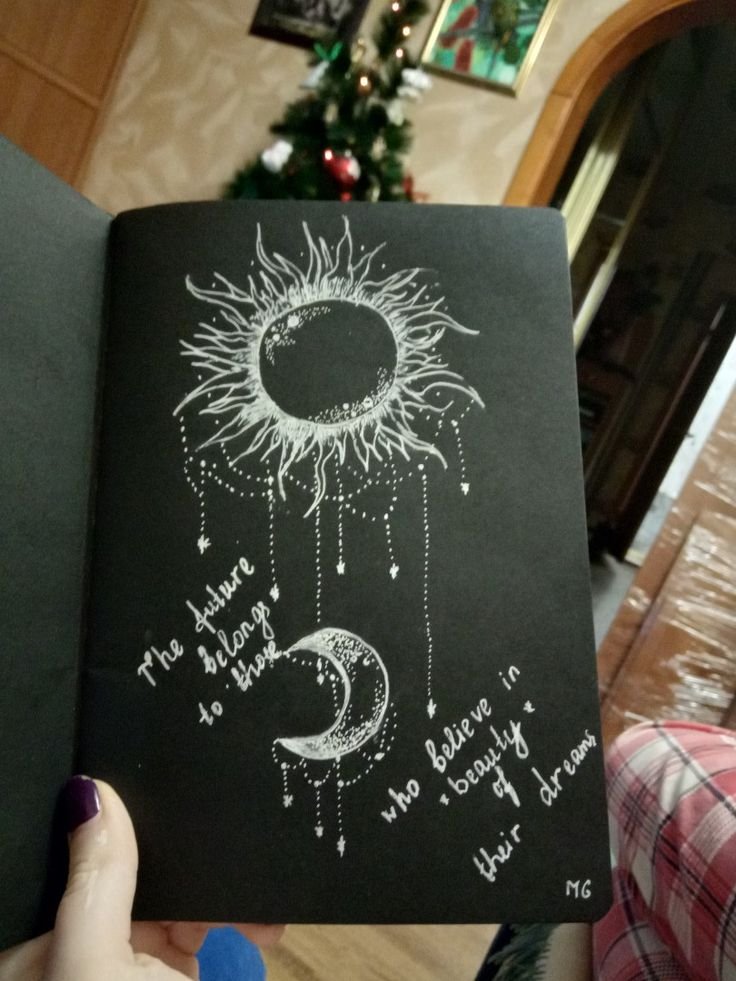 The future
belongs
to those
who believe in
beauty
of
their dreams
MG